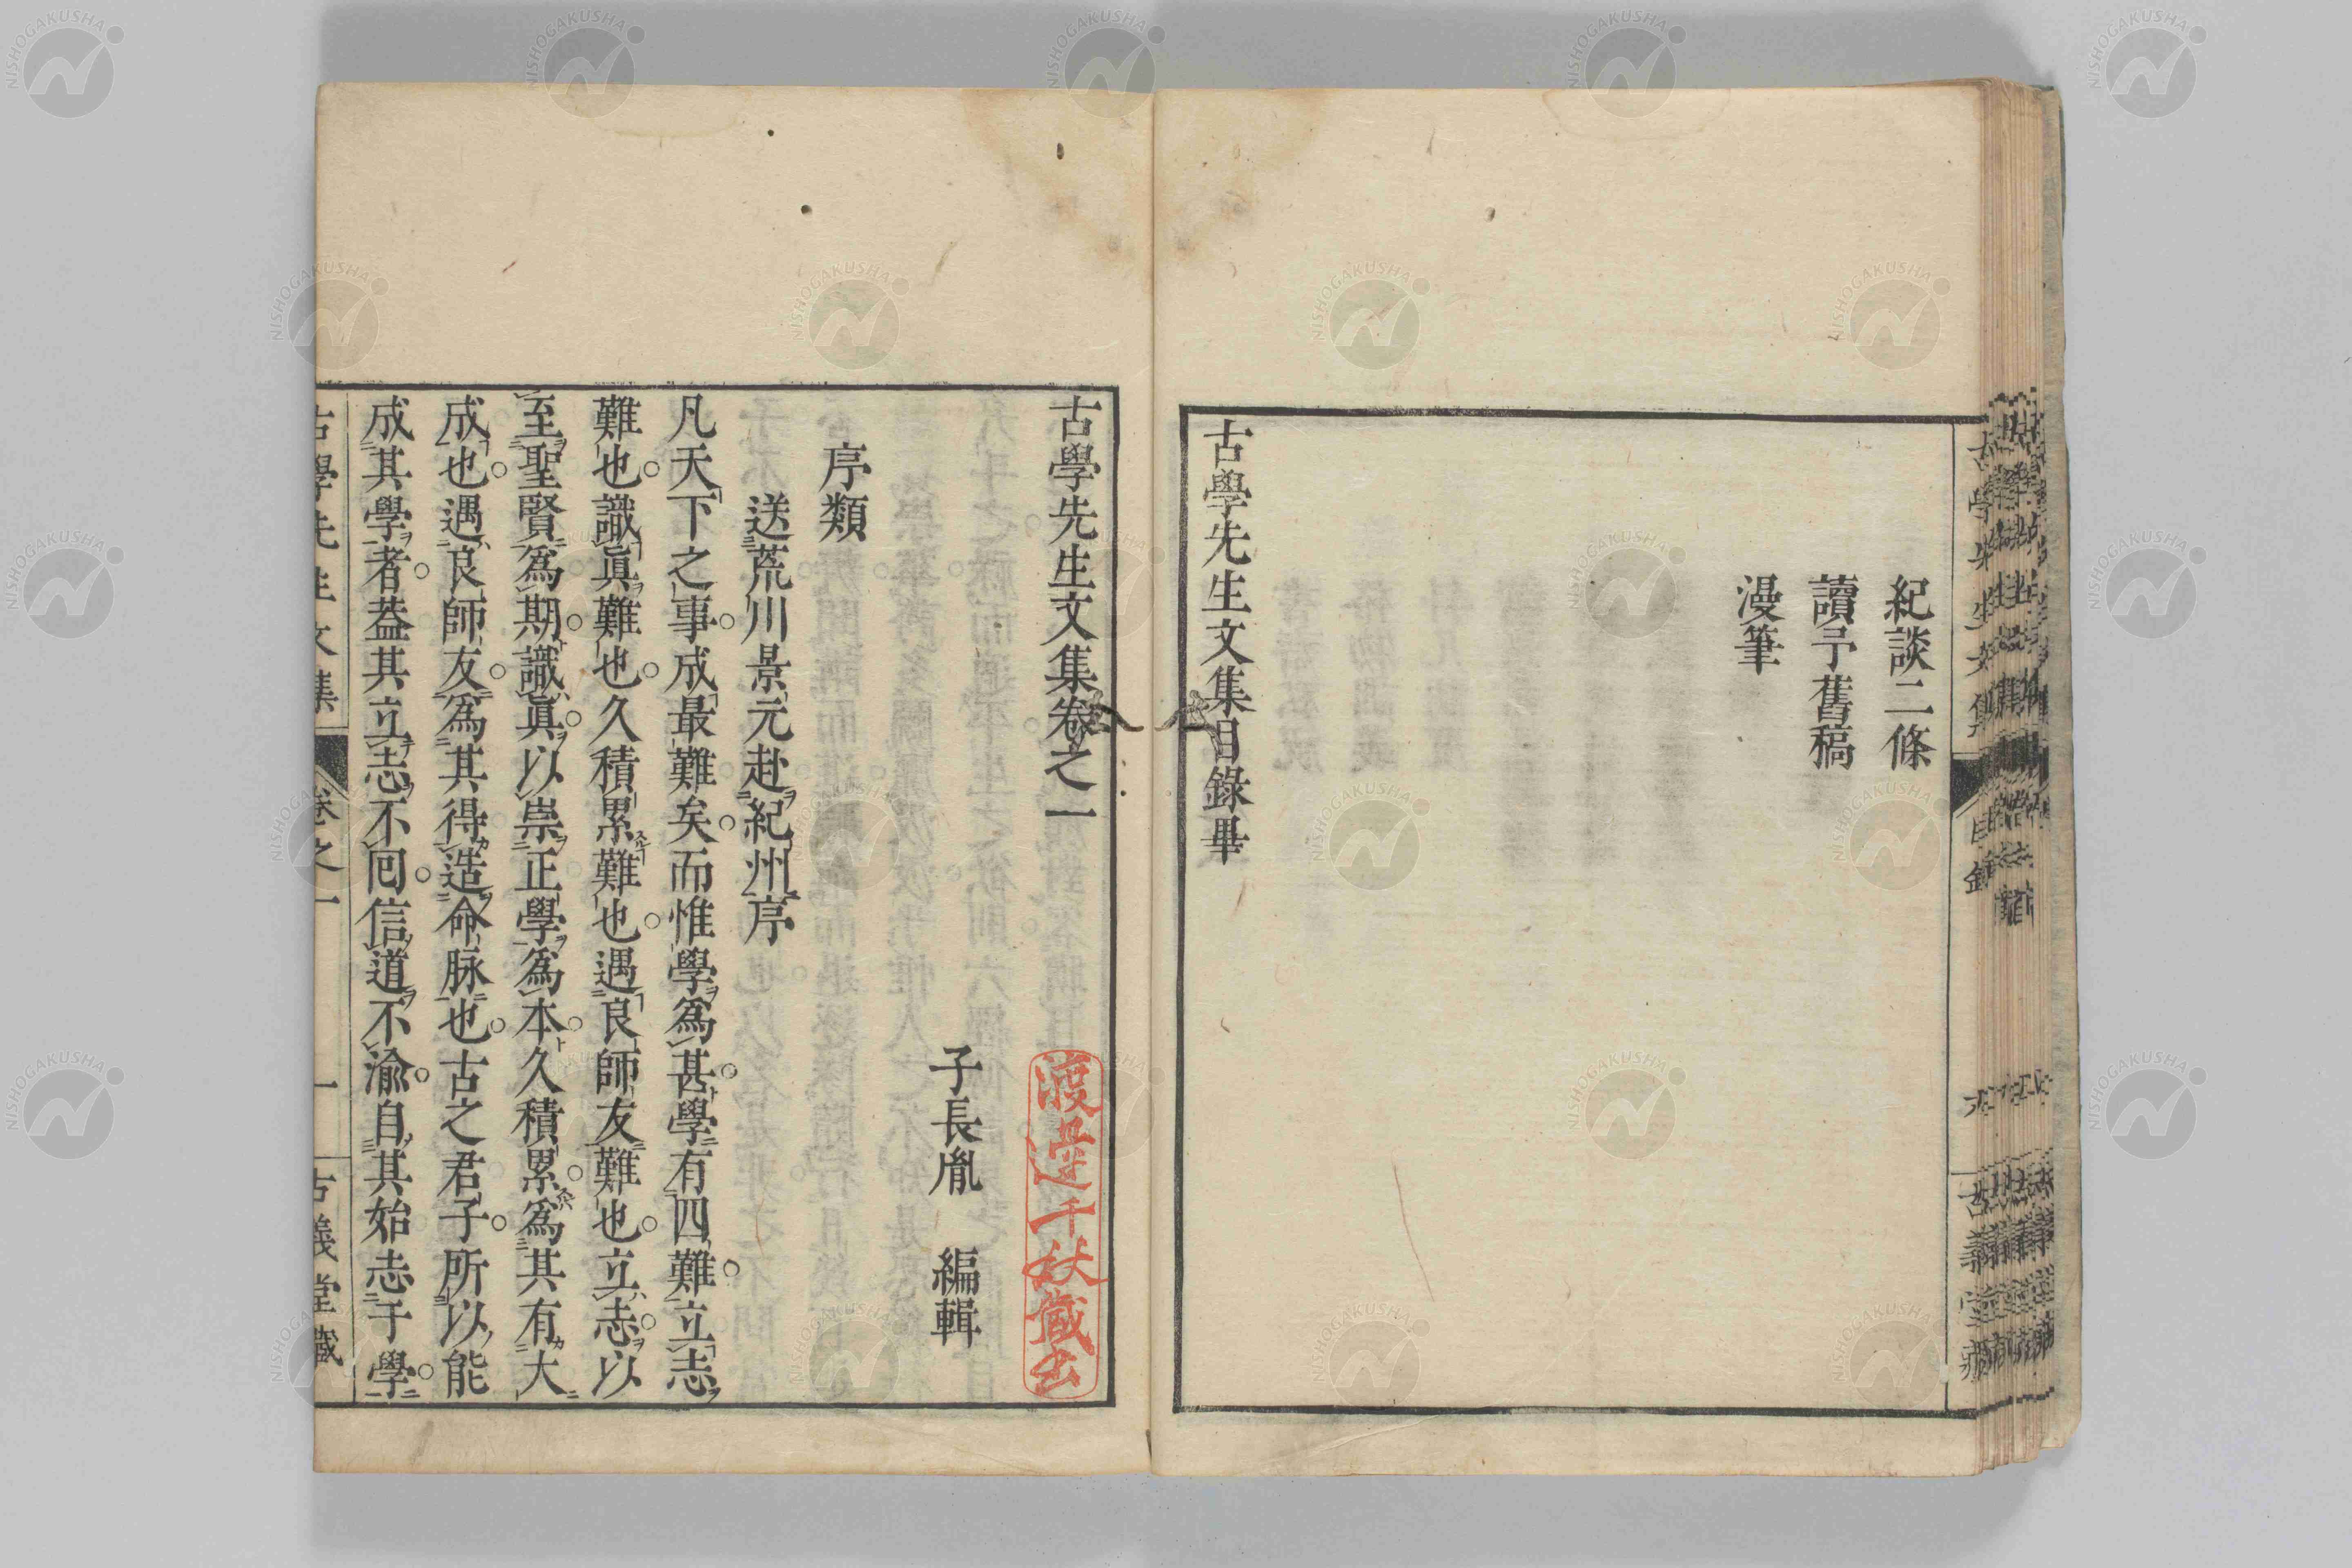 紀談二條
讀予舊稿
漫筆
古學先生文集目錄畢
古學先生文集卷之一
子長胤 編輯
序類
送荒川景元赴紀州序
凡天下之事成最難矣而惟學爲甚學有四難立志
難也識眞難也久積累難也遇良師友難也立志以
至聖賢爲期識眞以崇正學爲本久積累爲其有大
成也遇良師友爲其得造命脉也古之君子所以能
成其學者蓋其立志不回信道不渝自其始志于學
古學先生文集 卷之一 一 古義堂藏
渡邉千秋藏書
NISHOGAKUSHA